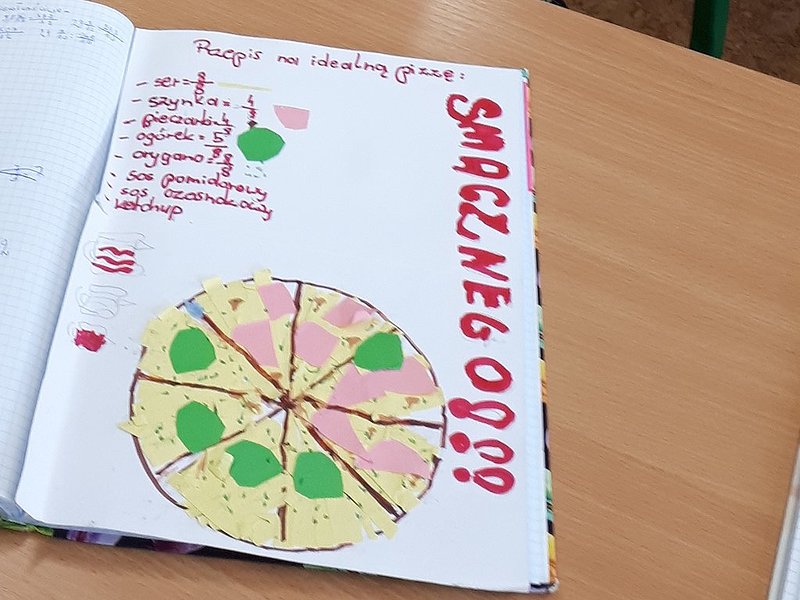 Przepis na idealną pizzę:
- ser = 8/8
- szynka = 4/8
- pieczarki 4/8
- ogórek = 5/8
- orygano = 8/8
- sos pomidorowy
- sos czosnkowy
- ketchup
SMACZNEGO!!!